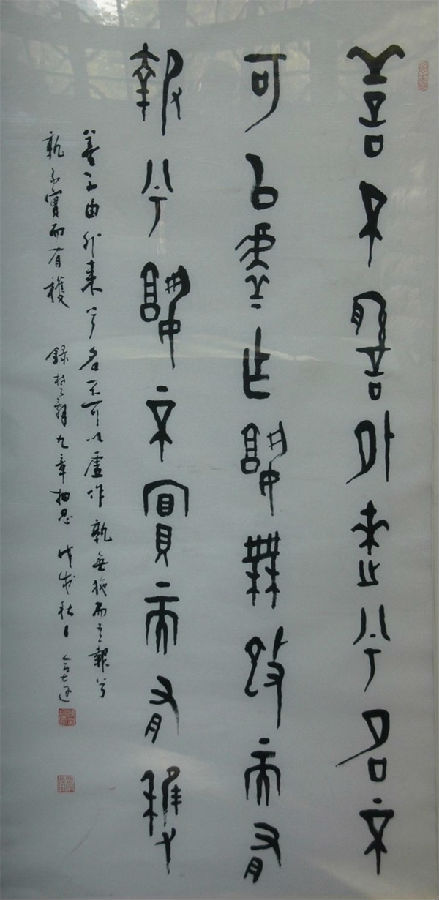 善不由外來兮名不
可以虛作孰無施而有
報兮孰不實而有穫
善不由外來兮名不可以虛作孰無施而有報兮
孰不實而有穫 錄楚辭九章抽思 戊戌秋日